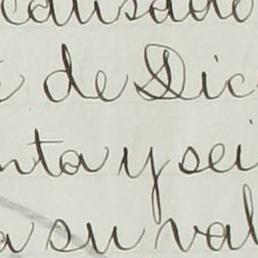 causado
de Dic
nta y sei
a su val